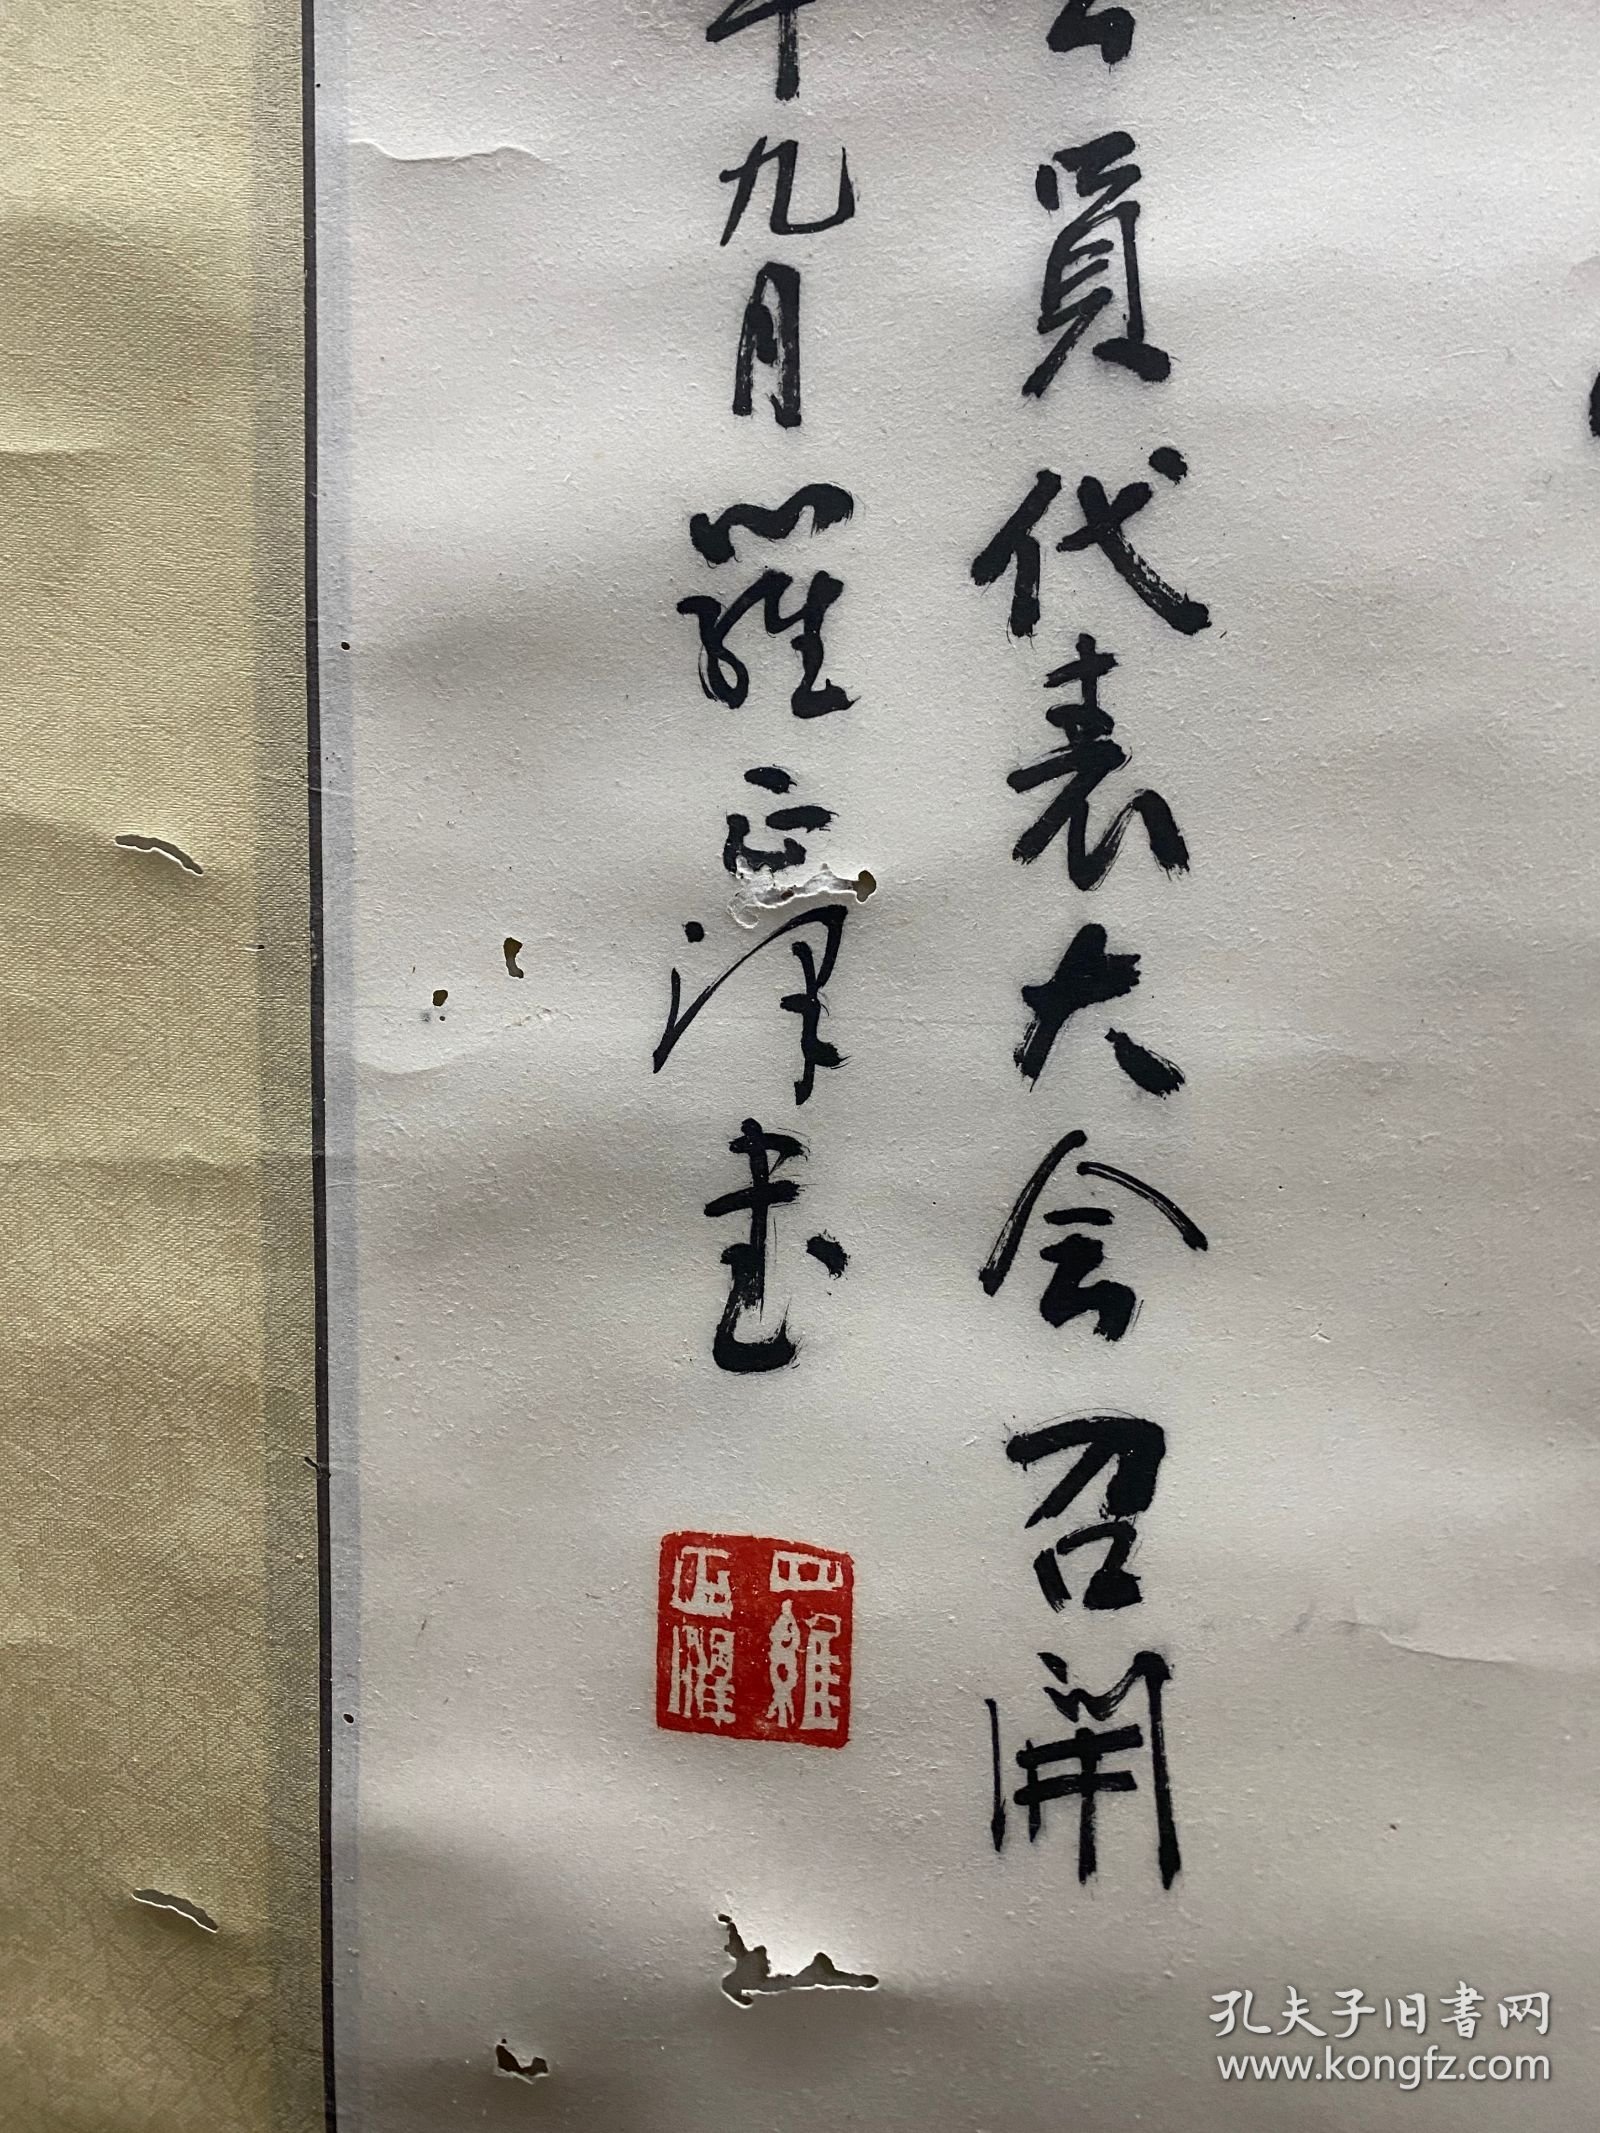 會員代表大会召開
年九月羅正澤書
孔夫子旧书网
www.kongfz.com